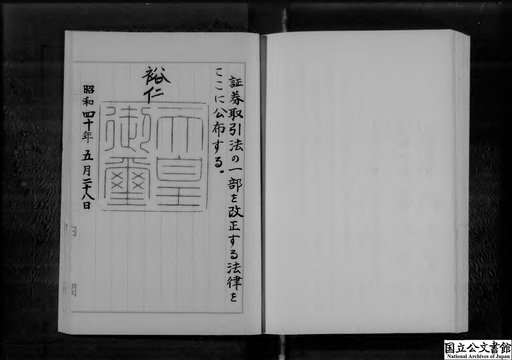 証券取引法の一部を改正する法律を
ここに公布する。
裕仁
天皇御璽
昭和四十年五月二十八日
国立公文書館
National Archives of Japan